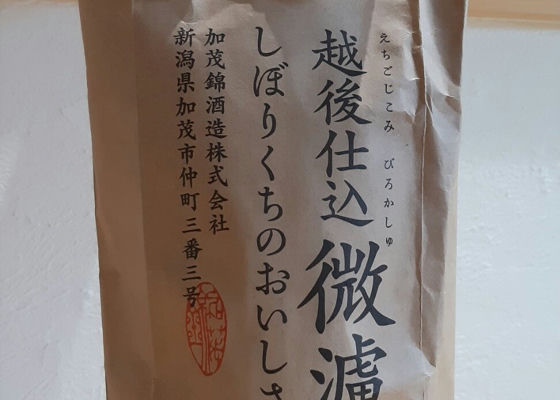 えちごじこみ びろかしゅ
越後仕込 微濾
しぼりくちのおいしさ
加茂錦酒造株式会社
新潟県加茂市仲町三番三号